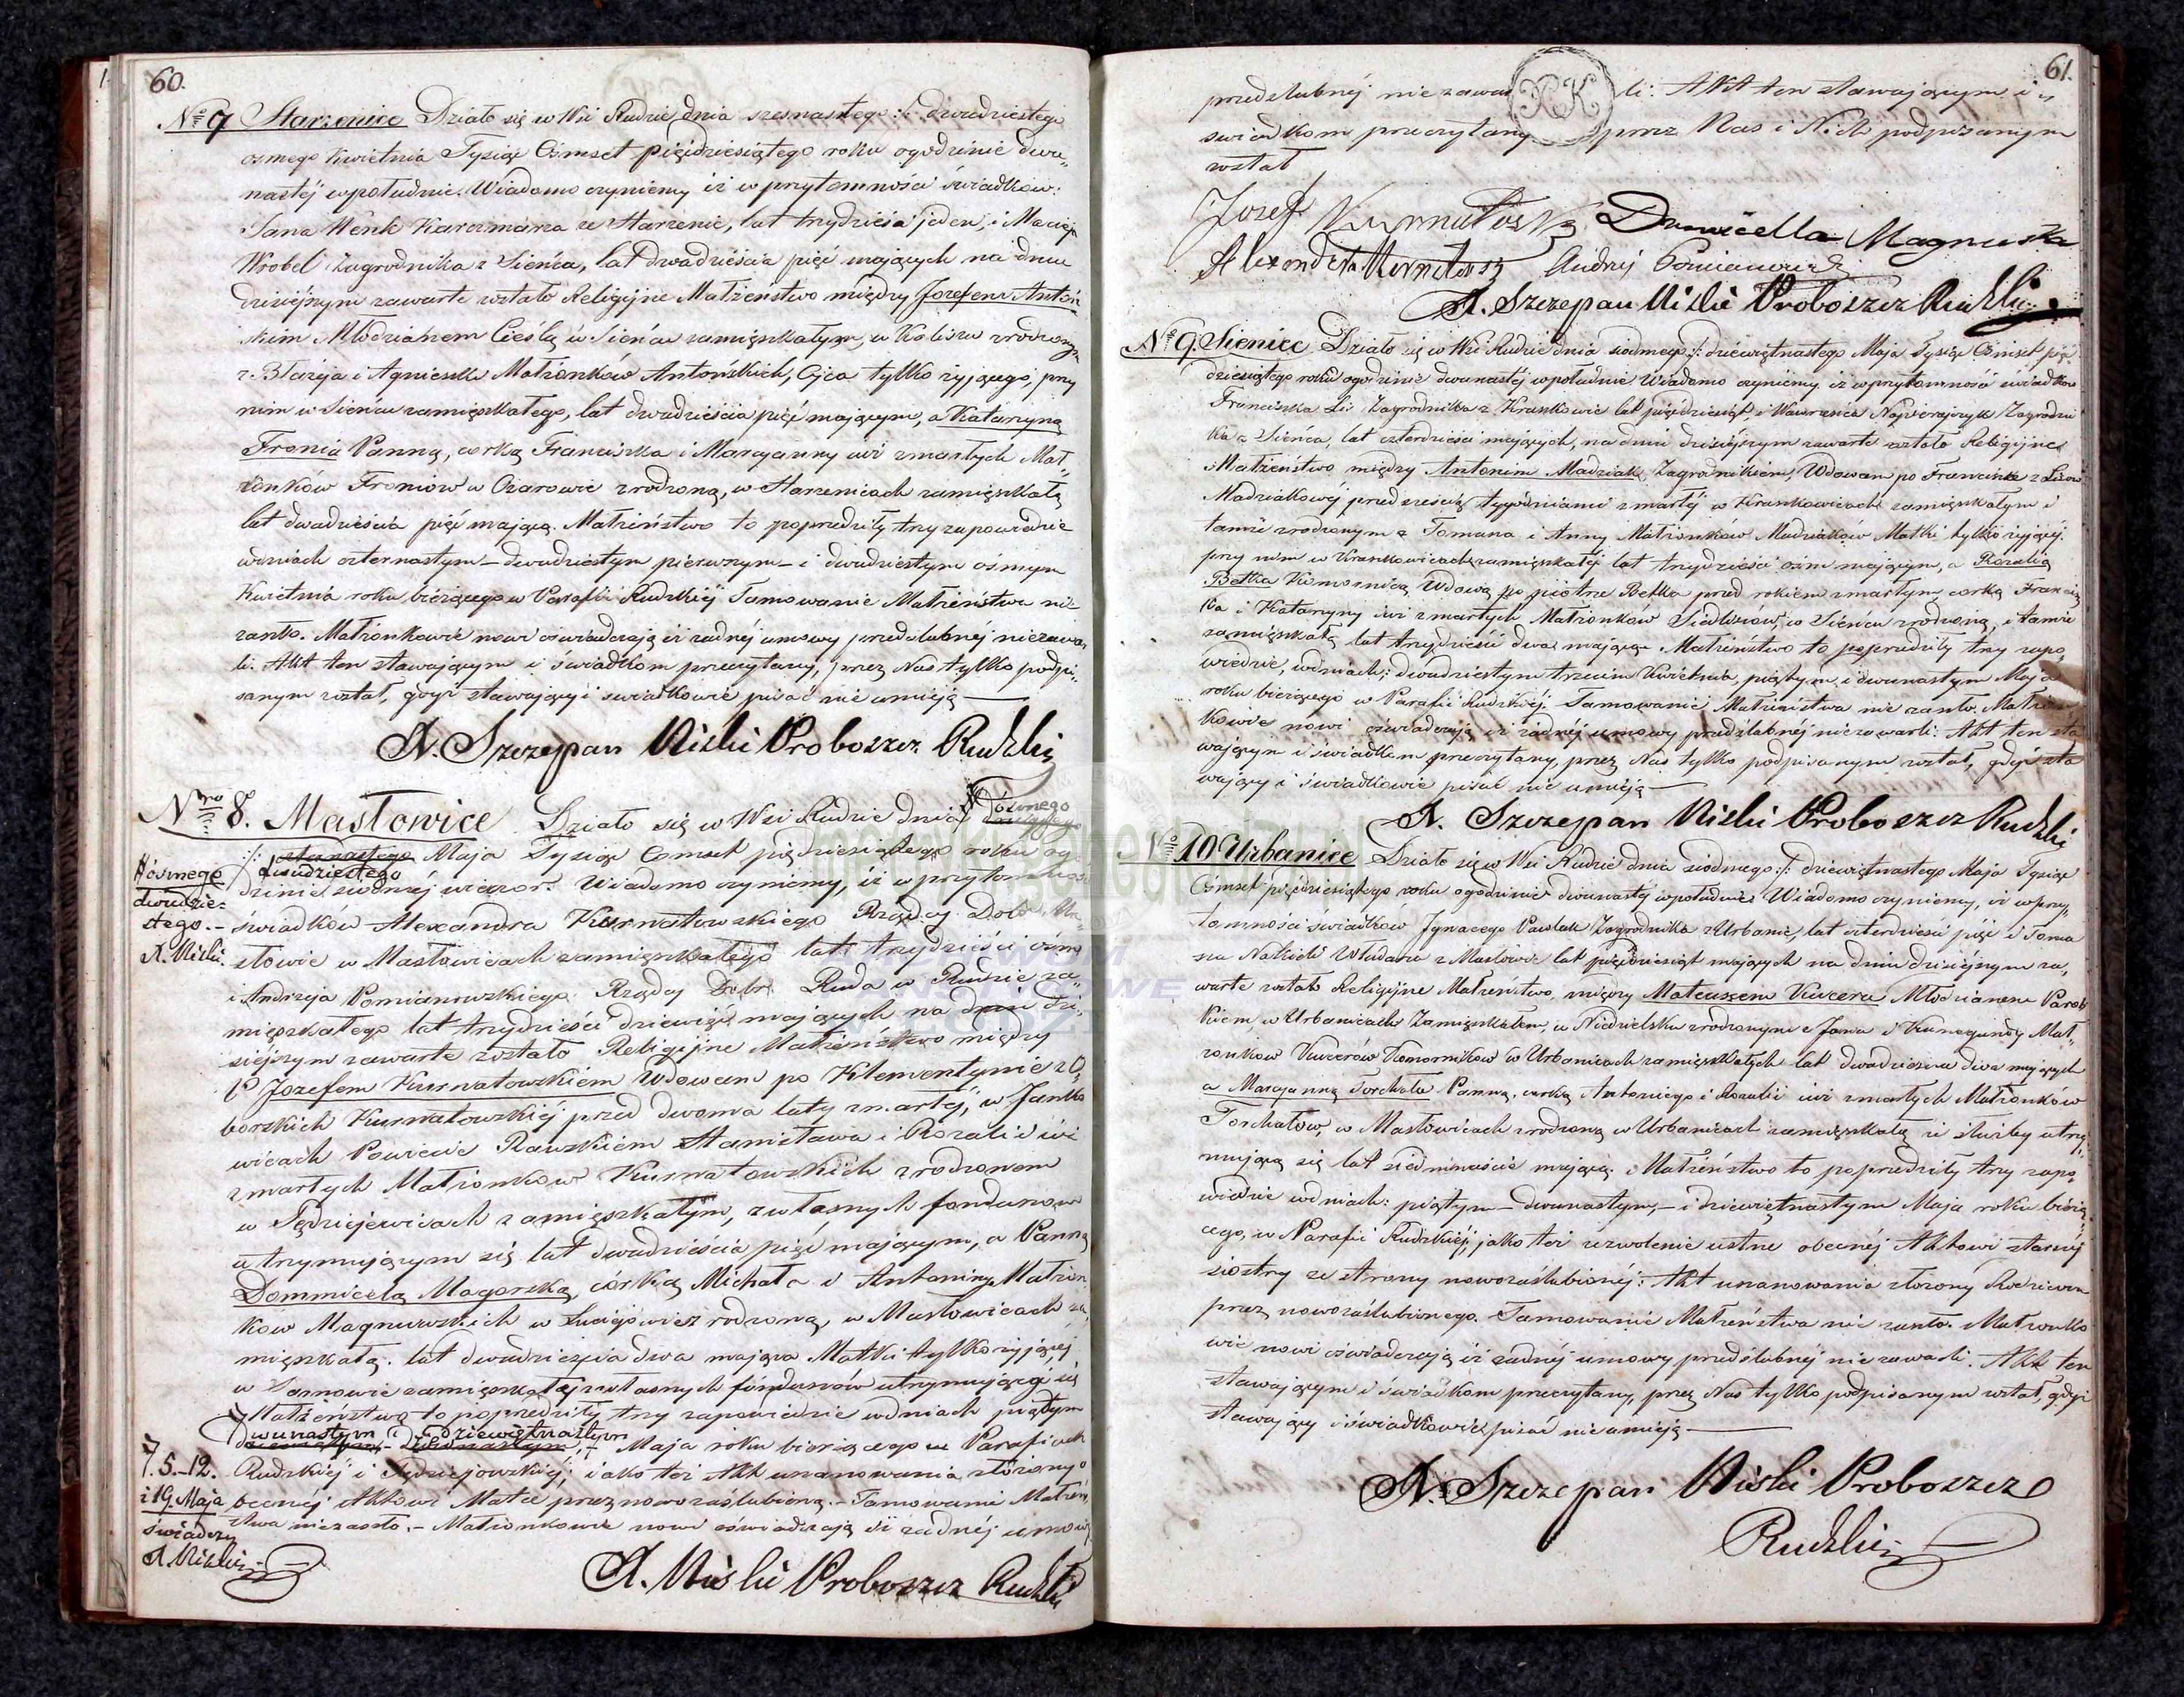 60.
Nro 9 Starzenice Działo się w Wsi Rudzie dnia szesnastego :/: dwudziestego
osmego Kwietnia Tysiąc Ośmset pięćdziesiątego roku ogodzinie dwu„
nastéj wpołudnie. Wiadomo czyniemy iż w przytomności świadków:
Jana Wenk Karczmarza ze Starzenic, lat trzydzieścia jeden, i Macieja
Wrobel Zagrodnika z Sieńca, lat dwadzieścia pięć mających na dniu
dzisiéjszym zawarte zostało Religijne Małżeństwo między Jozefem Antoń
skim Młodzianem Cieślą w Sieńcu zamięszkałym, w Kaliszu zrodzonym
z Błażeja i Agnieszki Małżonków Antońskich, Ojca tylko żyjącego, przy
nim w Sieńcu zamięszkałego, lat dwadzieścia pięć mającym, a Katarzyną
Fronia Panną, córką Franciszka i Maryanny już zmarłych Mał„
żonków Froniów w Ożarowie zrodzoną, w Starzenicach zamięszkałą
lat dwadzieścia pięć mającą. Małżeństwo to poprzedziły trzy zapowiedzie
wdniach czternastym – dwudziestym pierwszym – i dwudziestym ósmym
Kwietnia roku bieżącego w Parafii Rudzkiéj Tamowanie Małżeństwa nie
zaszło. Małżonkowie nowi oświadczają iż żadnéj umowy przedślubnéj niezawar„
li: Akt ten stawającym i świadkom przeczytany, przez Nas tylko podpi„
sanym został, gdyż stawający i świadkowie pisać nie umieją —
X. Szczepan Kiślii Proboszcz Rudzki
Nro 8. Masłowice Działo się w Wsi Rudzie dnia ósmego
:/: dwudziestego Maja Tysiąc Osmset pięćdziesiątego roku og„
dzinie siodméj wieczor. Wiadomo czyniemy, iż w przytomności
świadków Alexandra Kurnatowskiego Rządcy Dobr Ma„
słowic w Masłowicach zamięszkałego lat trzydzieści ośm
i Andrzeja Pomianowskiego Rządcy Dobr Ruda w Rudzie za„
mięszkałego lat trzydzieści dziewięć mających na dniu dzi„
siéjszym zawarte zostało Religijne Małżeństwo między
P Jozefem Kurnatowskiém Wdowcem po Klementynie z O„
borskich Kurnatowskiéj przed dwoma laty zmarłéj, w Janko
wicach Powiecie Rawskiem Stanisława i Rozalii już
zmarłych Małżonków Kurnatowskich zrodzonem
w Sędziejewicach zamięszkałym, z własnych funduszow
utrzymującym się lat dwadzieścia pięć mającym, a Panną
Dommicelą Magorską, córką Michała i Antoniny Małżon
ków Magnuwskich w zrodzoną, w Masłowicach za„
mięszkałą, lat dwadzieścia dwa mająca Matki tylko żyjącej
w zamięszkałéj z własnych funduszów utrzymująca się
Małżeństwo to poprzedziły trzy zapowiedzie wdniach piątym
dwunastym i dziewiętnastym Maja roku bieżącego w Parafiach
Rudzkiéj i Sędziejowskiéj; jako też Akt uszanowania złożony o„
becnéj Aktowi Matce przez nowozaślubioną. – Tamowanie Małżeń„
stwa niezaszło. – Małżonkowie nowi oświadczają iż żadnéj umowy
# ósmego
dwudzie=
stego. –
X. Kiślii.
7. 5. – 12.
i 19. Maja
świadczy
X. Kiślii
X. Kiślii Proboszcz Rudzki
61.
przedślubnéj niezawar li: Akt ten stawającym i„
swiadkom przeczytany przez Nas i Nich podpisanym
został
RK
Jozef Kurnatowski Dommicella Magnuska
Alexander Kurnatowski Andrzej Pomianowski
X. Szczepan Kiślii Proboszcz Rudzki
Nro 9. Sieniec Działo się w Wsi Rudzie dnia siodmego :/: dziewiętnastego Maja Tysiąc Ośmset pięć
dziesiątego roku ogodzinie dwunastéj wpołudnie Wiadomo czyniemy iż wprzytomności świadków
Franciszka Liś Zagrodnika z Kraszkowic lat pięćdziesiąt i Wawrzeńca Napierajczyk Zagrodni
ka z Sieńca, lat czterdzieści mających, na dniu dzisiéjszym zawarte zostało Religijne
Małżeństwo między Antonim Madziałą Zagrodnikiem, Wdowcem po Franciszce z Lisów
Madziakowéj przed sześcią tygodniami zmarłéj w Kraszkowicach zamięszkałym i
tamże zrodzonym z Tomasza i Anny Małżonków Madziaków Matki tylko żyjącéj.
przy nim w Kraszkowicach zamięszkałéj lat trzydzieści ośm mającym, a Rozalią
Bełka Komornicą Wdową po piotrze Bełka przed rokiem zmarłym, corką Francisz
ka i Katarzyny już zmarłych Małżonków Siedlarów, w Sieńcu zrodzoną, i tamże
zamięszkałą lat trzydzieści dwa mającą. Małżeństwo to poprzedziły trzy zapo„
wiedzie, wdniach: dwudziestym trzecim Kwietnia, piątym, i dwunastym Maja
roku bieżącego w Parafii Rudzkiéj. Tamowanie Małżeństwa nie zaszło. Małżon
kowie nowi oświadczają iż żadnéj umowy przedślubnéj niezawarli: Akt ten sta
wającym i świadkom przeczytany, przez Nas tylko podpisanym został, gdyż sta
wający i świadkowie pisać nie umieją —
X. Szczepan Kiślii Proboszcz Rudzki
Nro 10 Urbanice Działo się w Wsi Rudzie dnia siodmego :/: dziewiętnastego Maja Tysiąc
Ośmset pięćdziesiątego roku ogodzinie dwunastéj wpołudnie Wiadomo czyniemy, iż w przy„
tomności świadków Jgnacego Pawlak Zagrodnika z Urbanic, lat czterdzieści pięć i Toma
sza Nokieli Włodarza z Masłowic lat pięćdziesiąt mających na dniu dzisiéjszym za„
warte zostało Religijne Małżeństwo, między Mateuszem Kucera Młodzianem Parob
kiem, w Urbanicach Zamięszkałem, w Niedzielsku zrodzonym z Jana i Kunegundy Mał„
żonkow Kucerów Komornikow w Urbanicach zamięszkałych lat dwadzieścia dwa mających
a Maryanną Torchała Panną, corką Antoniego i Rozalii już zmarłych Małżonków
Torchałów, w Masłowicach zrodzoną w Urbanicach zamięszkałą ze służby utrzy„
mującą się lat siedmnaście mającą. Małżeństwo to poprzedziły trzy zapo„
wiedzie wdniach: piątym – dwunastym, – i dziewiętnastym Maja roku bieżą„
cego, w Parafii Rudzkiéj, jako też zezwolenie ustne obecnéj Aktowi starszéj
siostry ze strony nowozaślubionéj: Akt uszanowania złożony Rodzicom
przez nowozaślubionego. Tamowanie Małżeństwa nie zaszło. Małżonko
wie nowi oświadczają iż żadnéj umowy przedślubnéj nie zawarli. Akt ten
stawającym i świadkom przeczytany, przez Nas tylko podpisanym został, gdyż
stawający i świadkowie pisać nie umieją —
X. Szczepan Kiślii Proboszcz
Rudzki